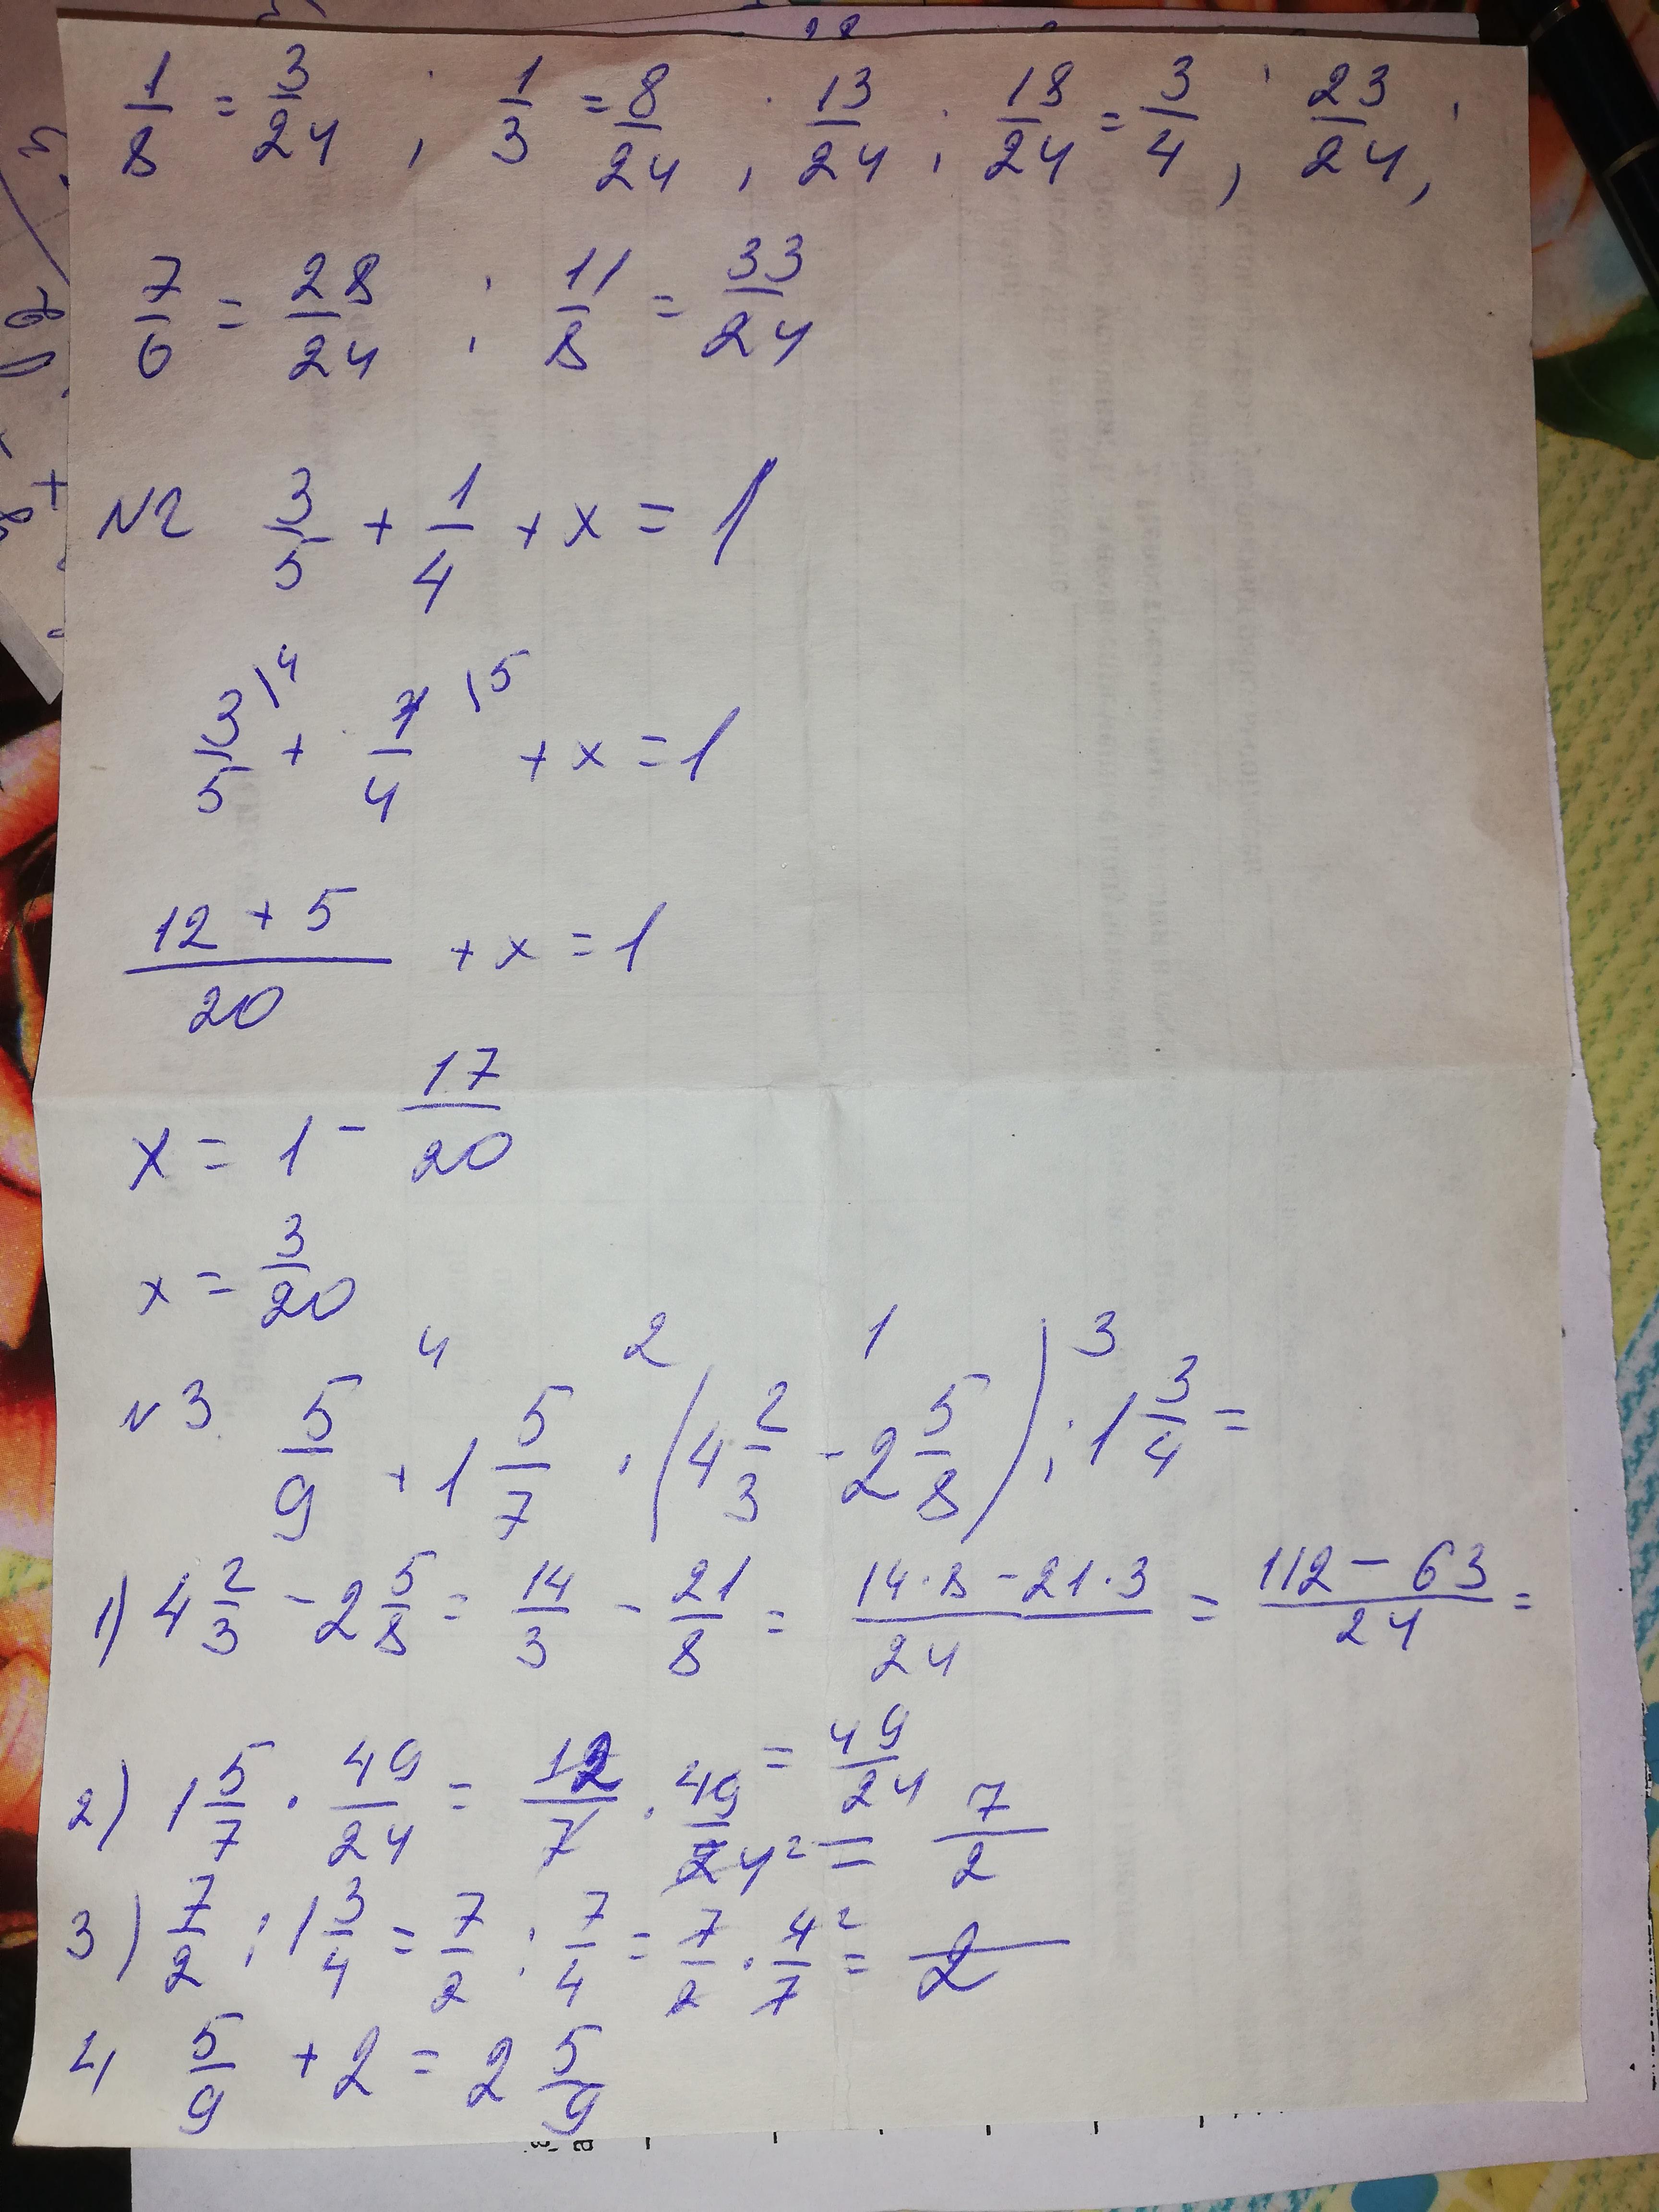 1/8 = 3/24 ; 1/3 = 8/24 ; 13/24 ; 18/24 = 3/4 ; 23/24 ;
7/6 = 28/24 ; 11/8 = 33/24
N2 3/5 + 1/4 + x = 1
3/5 |4 + 1/4 |5 + x = 1
(12 + 5)/20 + x = 1
x = 1 - 17/20
x = 3/20
4 2 1 3
N3 5/9 + 1 5/7 · (4 2/3 - 2 5/8) : 1 3/4 =
1) 4 2/3 - 2 5/8 = 14/3 - 21/8 = (14·8 - 21·3)/24 = (112 - 63)/24 =
= 49/24
2) 1 5/7 · 49/24 = 12/7 · 49/24 2 = 7/2
3) 7/2 : 1 3/4 = 7/2 : 7/4 = 7/2 · 4/7 2 = 2
4) 5/9 + 2 = 2 5/9